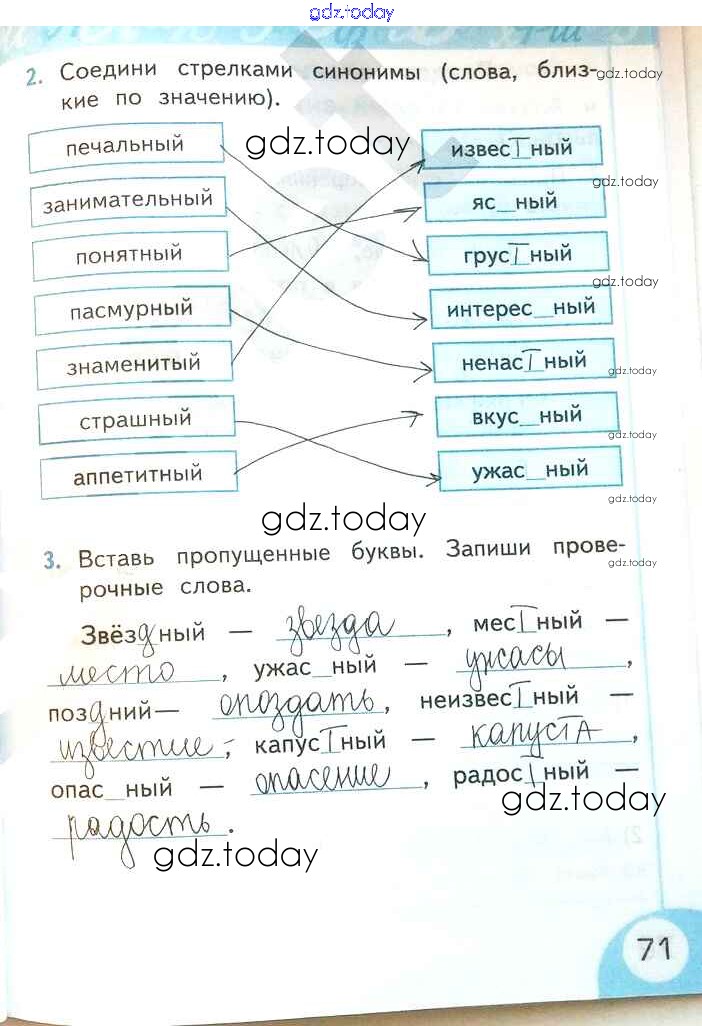 gdz.today
2. Соедини стрелками синонимы (слова, близ-
gdz.today
кие по значению).
печальный
gdz.today
извесТный
gdz.today
занимательный
яс_ный
понятный
грусТный
gdz.today
пасмурный
интерес_ный
знаменитый
ненасТный
gdz.today
страшный
вкус_ный
gdz.today
аппетитный
ужас_ный
gdz.today
gdz.today
3. Вставь пропущенные буквы. Запиши прове-
gdz.today
рочные слова.
Звёздный — звезда, месТный —
место, ужас_ный — ужасы,
поздний— опоздать, неизвесТный —
известие, капусТный — капусТА,
опас_ный — опасение, радосТный —
gdz.today
радость.
gdz.today
71